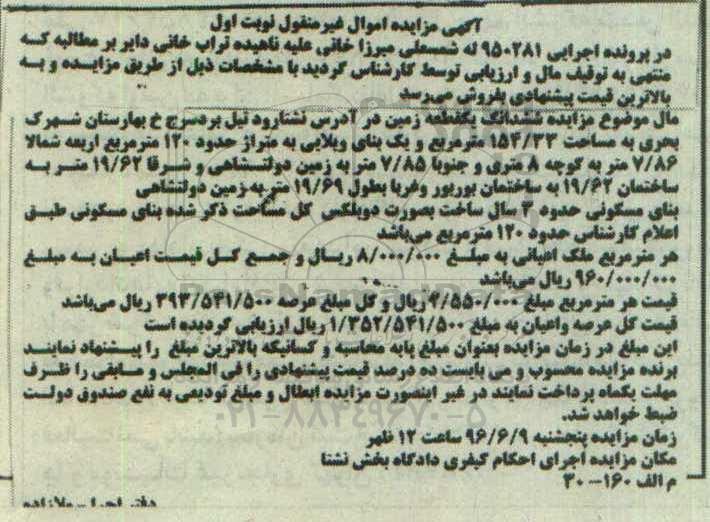 آگهی مزایده اموال غیرمنقول نوبت اول
در پرونده اجرایی ۹۵۰۲۸۱ له شمسعلی میرزا خانی علیه ناهیده تراب خانی دایر بر مطالبه که
منتهی به توقیف مال و ارزیابی توسط کارشناس گردید با مشخصات ذیل از طریق مزایده و به
بالاترین قیمت پیشنهادی بفروش می‌رسد
مال موضوع مزایده ششدانگ یکقطعه زمین در آدرس نشتارود نیل بردسرج خ بهارستان شهرک
بحری به مساحت ۱۵۴/۳۳ مترمربع و یک بنای ویلایی به متراژ حدود ۱۲۰ مترمربع اربعه شمالا
۷/۸۶ متر به کوچه ۸ متری و جنوبا ۷/۸۵ متر به زمین دولتشاهی و شرقا ۱۹/۶۲ متر به
ساختمان ۱۹/۶۲ به ساختمان پورپور وغربا بطول ۱۹/۶۹ متر به زمین دولتشاهی
بنای مسکونی حدود ۳ سال ساخت بصورت دوبلکس کل مساحت ذکر شده بنای مسکونی طبق
اعلام کارشناس حدود ۱۲۰ مترمربع می‌باشد
هر مترمربع ملک اعیانی به مبلغ ۸/۰۰۰/۰۰۰ ریال و جمع کل قیمت اعیان به مبلغ
۹۶۰/۰۰۰/۰۰۰ ریال می‌باشد
قیمت هر مترمربع مبلغ ۲/۵۵۰/۰۰۰ ریال و کل مبلغ عرصه ۳۹۳/۵۴۱/۵۰۰ ریال می‌باشد
قیمت کل عرصه واعیان به مبلغ ۱/۳۵۲/۵۴۱/۵۰۰ ریال ارزیابی گردیده است
این مبلغ در زمان مزایده بعنوان مبلغ پایه محاسبه و کسانیکه بالاترین مبلغ را پیشنهاد نمایند
برنده مزایده محسوب و می بایست ده درصد قیمت پیشنهادی را فی المجلس و مابقی را ظرف
مهلت یکماه پرداخت نمایند در غیر اینصورت مزایده ابطال و مبلغ تودیعی به نفع صندوق دولت
ضبط خواهد شد.
زمان مزایده پنجشنبه ۹۶/۶/۹ ساعت ۱۲ ظهر
مکان مزایده اجرای احکام کیفری دادگاه بخش نشتا
م الف ۱۶۰-۳۰
ParsNamadData
۰۲۱-۸۸۳۴۹۶۷۰-۵